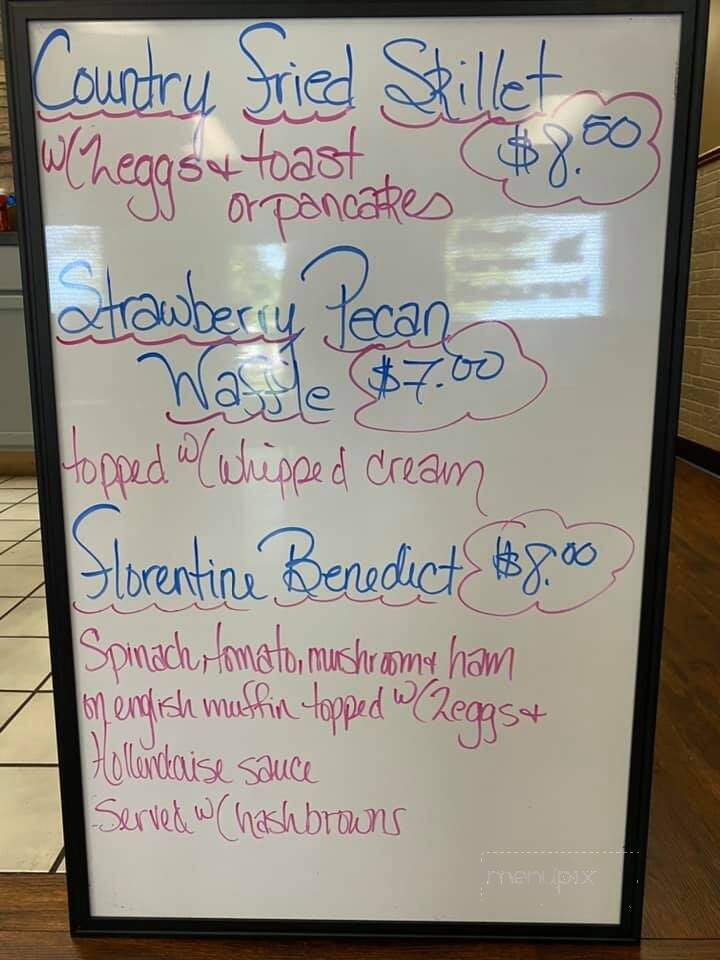 Country Fried Skillet
$8.50
w/ 2 eggs + toast
or pancakes
Strawberry Pecan
Waffle $7.00
topped w/ whipped cream
Florentine Benedict $8.00
Spinach, tomato, mushroom + ham
on english muffin topped w/ 2 eggs +
Hollendaise sauce
Served w/ hashbrowns
menupix